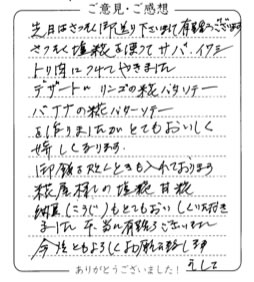 ご意見・ご感想
先日はさっそく御送り下さいまして有難うございます
さっそく塩糀を使って サバ、イワシ
トリ肉につけてやきました
デザートに リンゴの糀バタソテー
バナナの糀バターソテー
を作りましたがとてもおいしく
嬉しくなります
御飯を炊くときも入れております
糀屋様の塩糀 甘糀
納豆(こうじ)もとてもおいしくいただき
ました 本当に有難うございました
今後ともよろしくお願い致します
ありがとうございました!